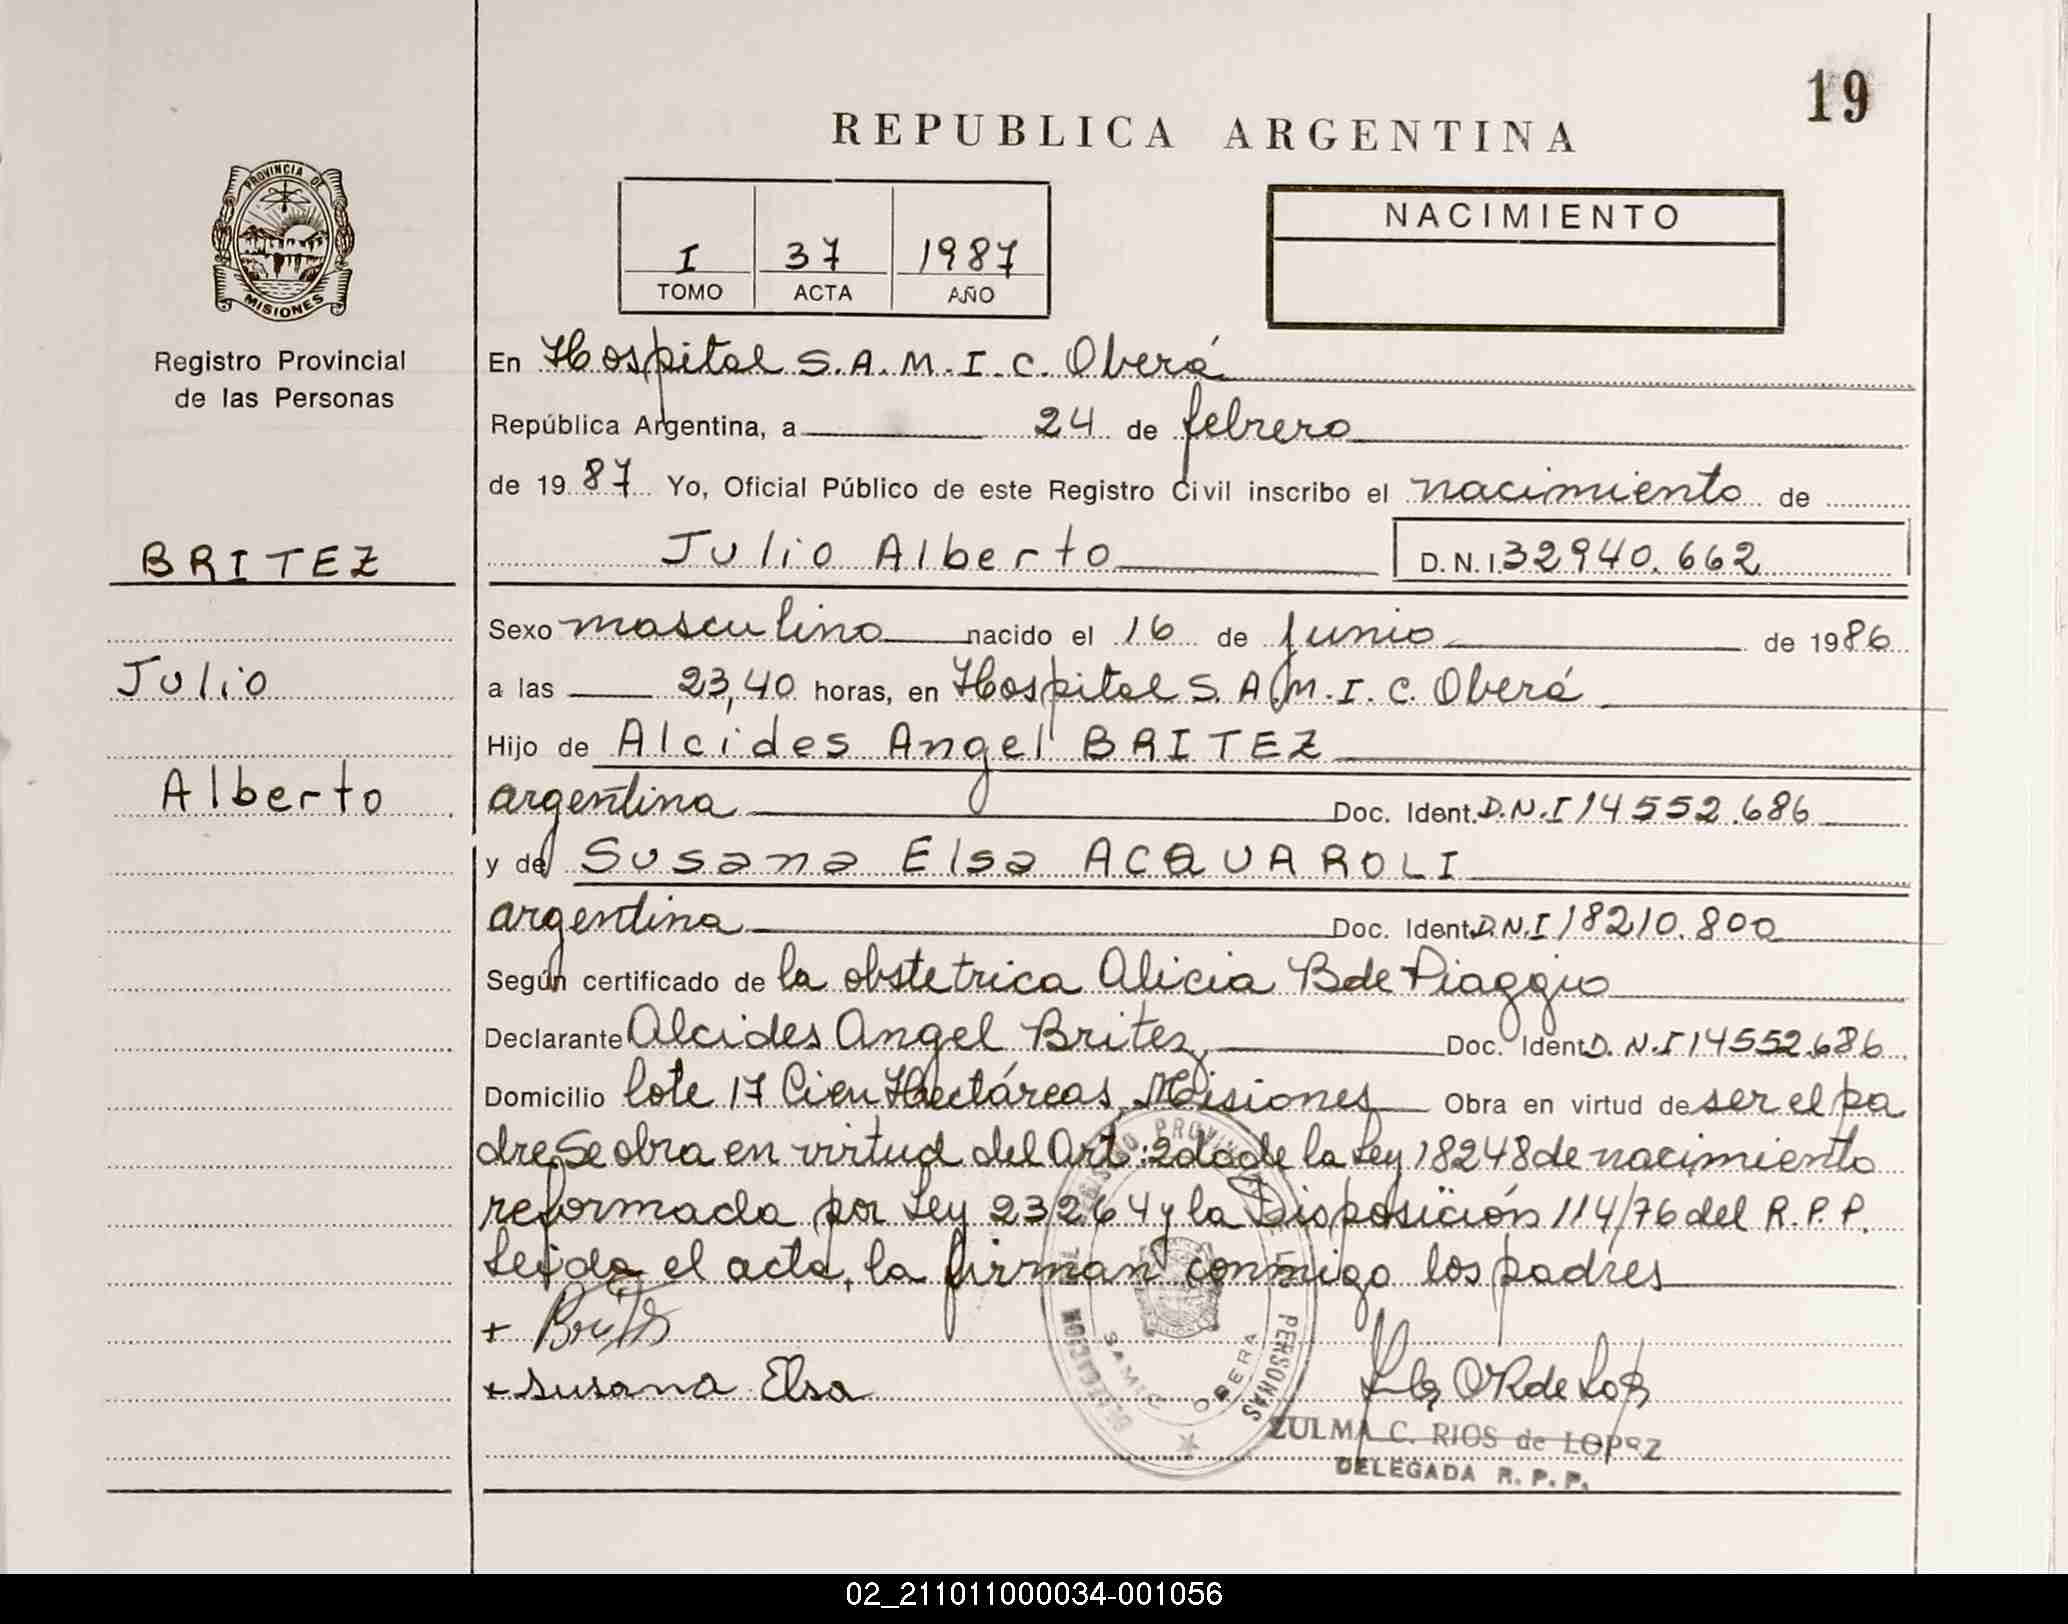 19
REPUBLICA ARGENTINA
PROVINCIA DE
MISIONES
Registro Provincial
de las Personas
I 37 1987
TOMO ACTA AÑO
NACIMIENTO
En Hospital S.A.M.I.C. Oberá
República Argentina, a 24 de febrero
de 1987 Yo, Oficial Público de este Registro Civil inscribo el nacimiento de
BRITEZ
Julio Alberto D.N.I. 32940.662
Sexo masculino nacido el 16 de junio de 1986
Julio
a las 23,40 horas, en Hospital S.A.M.I.C. Oberá
Hijo de Alcides Angel BRITEZ
Alberto
argentina Doc. Ident. D.N.I 14552.686
y de Susana Elsa ACQUAROLI
argentina Doc. Ident. D.N.I 18210.800
Según certificado de la obstetrica Alicia B de Piaggio
Declarante Alcides Angel Britez, Doc. Ident. D.N.I 14552.686
Domicilio lote 17 Cien Hectáreas, Misiones Obra en virtud de ser el pa
dre Se obra en virtud del Art: 2do de la Ley 18248 de nacimiento
reformada por Ley 23264 y la Disposición 114/76 del R.P.P.
Leída el acta, la firman conmigo los padres
+ Britez
+ Susana Elsa
REGISTRO PROVINCIAL DE LAS PERSONAS
DELEGACION
SAMIC OBERA
ZULMA C. RIOS de LOPEZ
DELEGADA R. P. P.
02_211011000034-001056